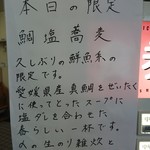 本日の限定
鯛塩蕎麦
久しぶりの鮮魚系の
限定です。
愛媛県産真鯛をぜいたく
に使ってとったスープに
塩ダレを合わせた
春らしい一杯です。
の生のり雑炊と